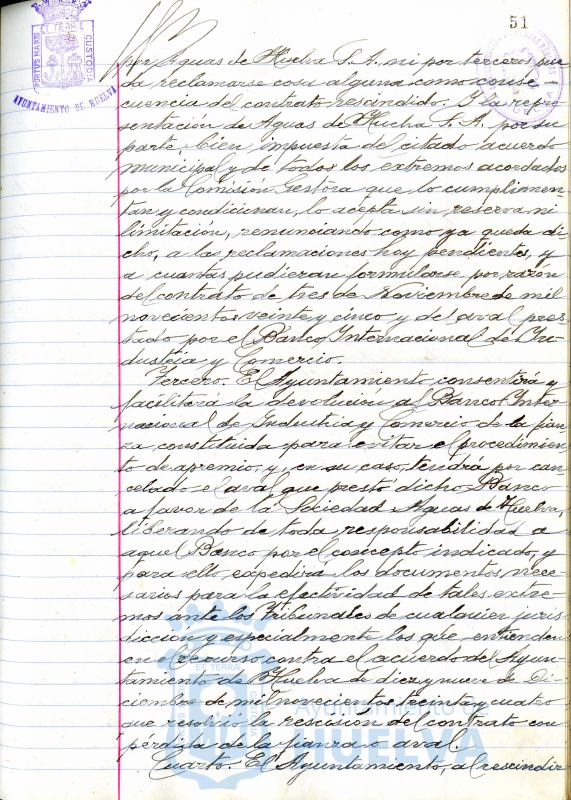 51
PORTUS MARIS ET TERRE CUSTODIA
AYUNTAMIENTO DE HUELVA
por Aguas de Huelva S. A. ni por terceros pue-
da reclamarse cosa alguna como conse
cuencia del contrato rescindido. Y la repre-
sentación de Aguas de Huelva S. A. por su
parte, bien impuesta del citado acuerdo
municipal y de todos los extremos acordados
por la Comisión Gestora que lo cumplimen-
tan y condicionan, lo acepta sin reserva ni
limitación, renunciando como ya queda di-
cho, a las reclamaciones hoy pendientes, y
a cuantas pudieran formularse por razón
del contrato de tres de Noviembre de mil
novecientos veinte y cinco y del aval pres-
tado por el Banco Internacional de In-
dustria y Comercio.
Tercero. El Ayuntamiento consentirá y
facilitará la devolución al Banco Inter
nacional de Industria y Comercio de la fian
za constituida para evitar el procedimien
to de apremio, y, en su caso, tendrá por can
celado el aval que prestó dicho Banco
a favor de la Sociedad Aguas de Huelva,
liberando de toda responsabilidad a
aquel Banco por el concepto indicado, y
para ello, expedirá los documentos nece-
sarios para la efectividad de tales extre
mos ante los Tribunales de cualquier juris
dicción y especialmente los que entienden
en el recurso contra el acuerdo del Ayun-
tamiento de Huelva de diez y nueve de Di-
ciembre de mil novecientos treinta y cuatro
que resolvió la rescisión del contrato con
pérdida de la fianza o aval.
Cuarto. El Ayuntamiento, al rescindir
Ayuntamiento de
HUELVA